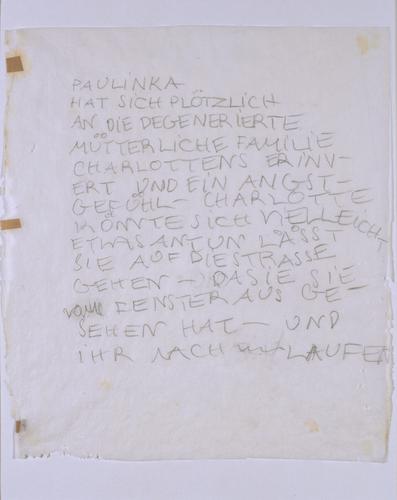 PAULINKA
HAT SICH PLÖTZLICH
AN DIE DEGENERIERTE
MÜTTERLICHE FAMILIE
CHARLOTTENS ERINN-
ERT UND EIN ANGST-
GEFÜHL- CHARLOTTE
KÖNNTE SICH VIELLEICHT
ETWAS ANTUN LÄSST
SIE AUF DIE STRASSE
GEHEN - DA SIE SIE
VOM FENSTER AUS GE-
SEHEN HAT - UND
IHR NACH LAUFEN